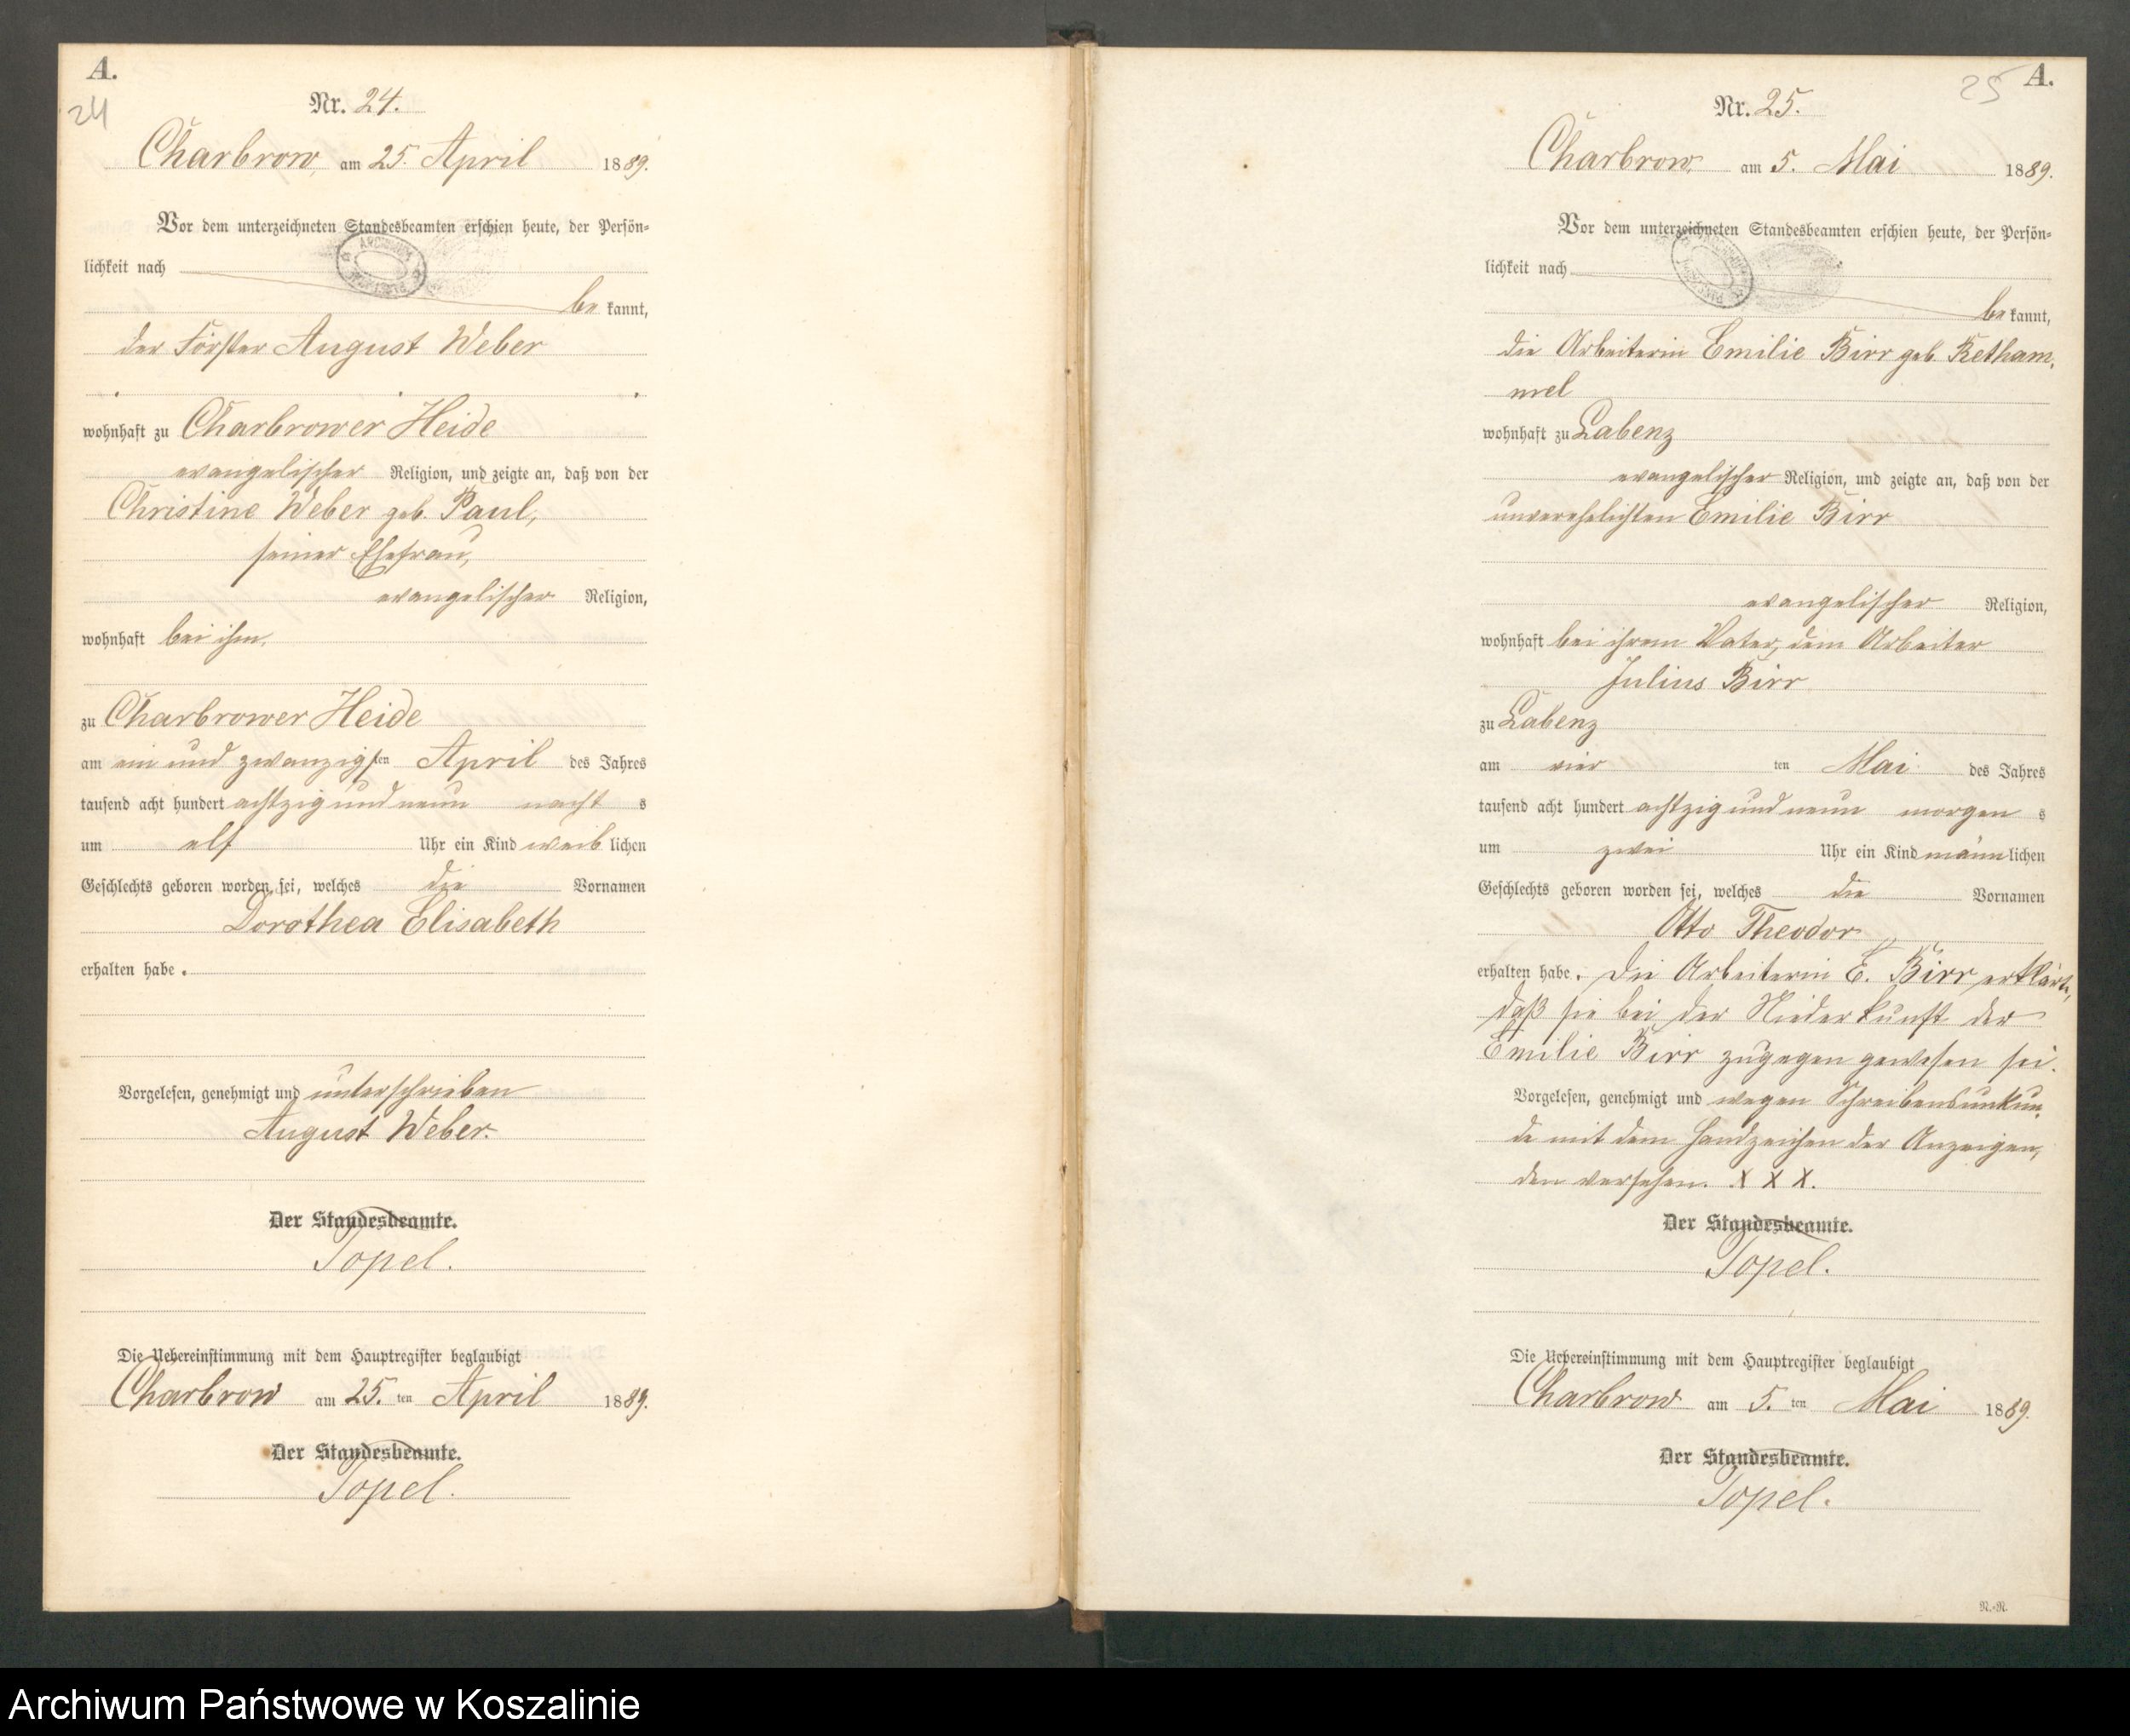 A.
24
Nr. 24.
Charbrow, am 25. April 1889.
Vor dem unterzeichneten Standesbeamten erschien heute, der Persön-
lichkeit nach
be kannt,
der Förster August Weber
wohnhaft zu Charbrower Heide
evangelischer Religion, und zeigte an, daß von der
Christine Weber geb. Paul,
seiner Ehefrau,
evangelischer Religion,
wohnhaft bei ihm,
zu Charbrower Heide
am ein und zwanzigsten April des Jahres
tausend acht hundert achtzig und neun nacht s
um elf Uhr ein Kind weib lichen
Geschlechts geboren worden sei, welches die Vornamen
Dorothea Elisabeth
erhalten habe.
Vorgelesen, genehmigt und unterschrieben
August Weber.
Der Standesbeamte.
Topel.
Die Uebereinstimmung mit dem Hauptregister beglaubigt
Charbrow am 25. ten April 1889.
Der Standesbeamte.
Topel.
25
A.
Nr. 25.
Charbrow, am 5. Mai 1889.
Vor dem unterzeichneten Standesbeamten erschien heute, der Persön-
lichkeit nach
be kannt,
die Arbeiterin Emilie Birr geb. Retham,
mel
wohnhaft zu Labenz
evangelischer Religion, und zeigte an, daß von der
unverehelichten Emilie Birr
evangelischer Religion,
wohnhaft bei ihrem Vater, dem Arbeiter
Julius Birr
zu Labenz
am vier ten Mai des Jahres
tausend acht hundert achtzig und neun morgen s
um zwei Uhr ein Kind männ lichen
Geschlechts geboren worden sei, welches die Vornamen
Otto Theodor
erhalten habe. Die Arbeiterin E. Birr erklärte,
daß sie bei der Niederkunft der
Emilie Birr zugegen gewesen sei.
Vorgelesen, genehmigt und wegen Schreibensunkun,
de mit dem Handzeichen der Anzeigen,
den versehen. X X X.
Der Standesbeamte.
Topel.
Die Uebereinstimmung mit dem Hauptregister beglaubigt
Charbrow am 5. ten Mai 1889.
Der Standesbeamte.
Topel.
N.-N.
Archiwum Państwowe w Koszalinie